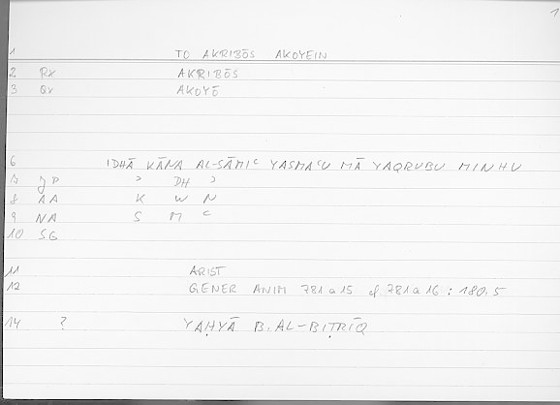 1
1 TO AKRIBŌS AKOYEIN
2 RX AKRIBŌS
3 QX AKOYŌ
6 IDHĀ KĀNA AL-SĀMIᶜ YASMAᶜU MĀ YAQRUBU MINHU
ʾ DH ʾ
8 AA K W N
9 NA S M ᶜ
10 SG
11 ARIST
12 GENER ANIM 781a15 cf. 781a16 : 180.5
14 ? YAḤYĀ B. AL-BIṬRĪQ